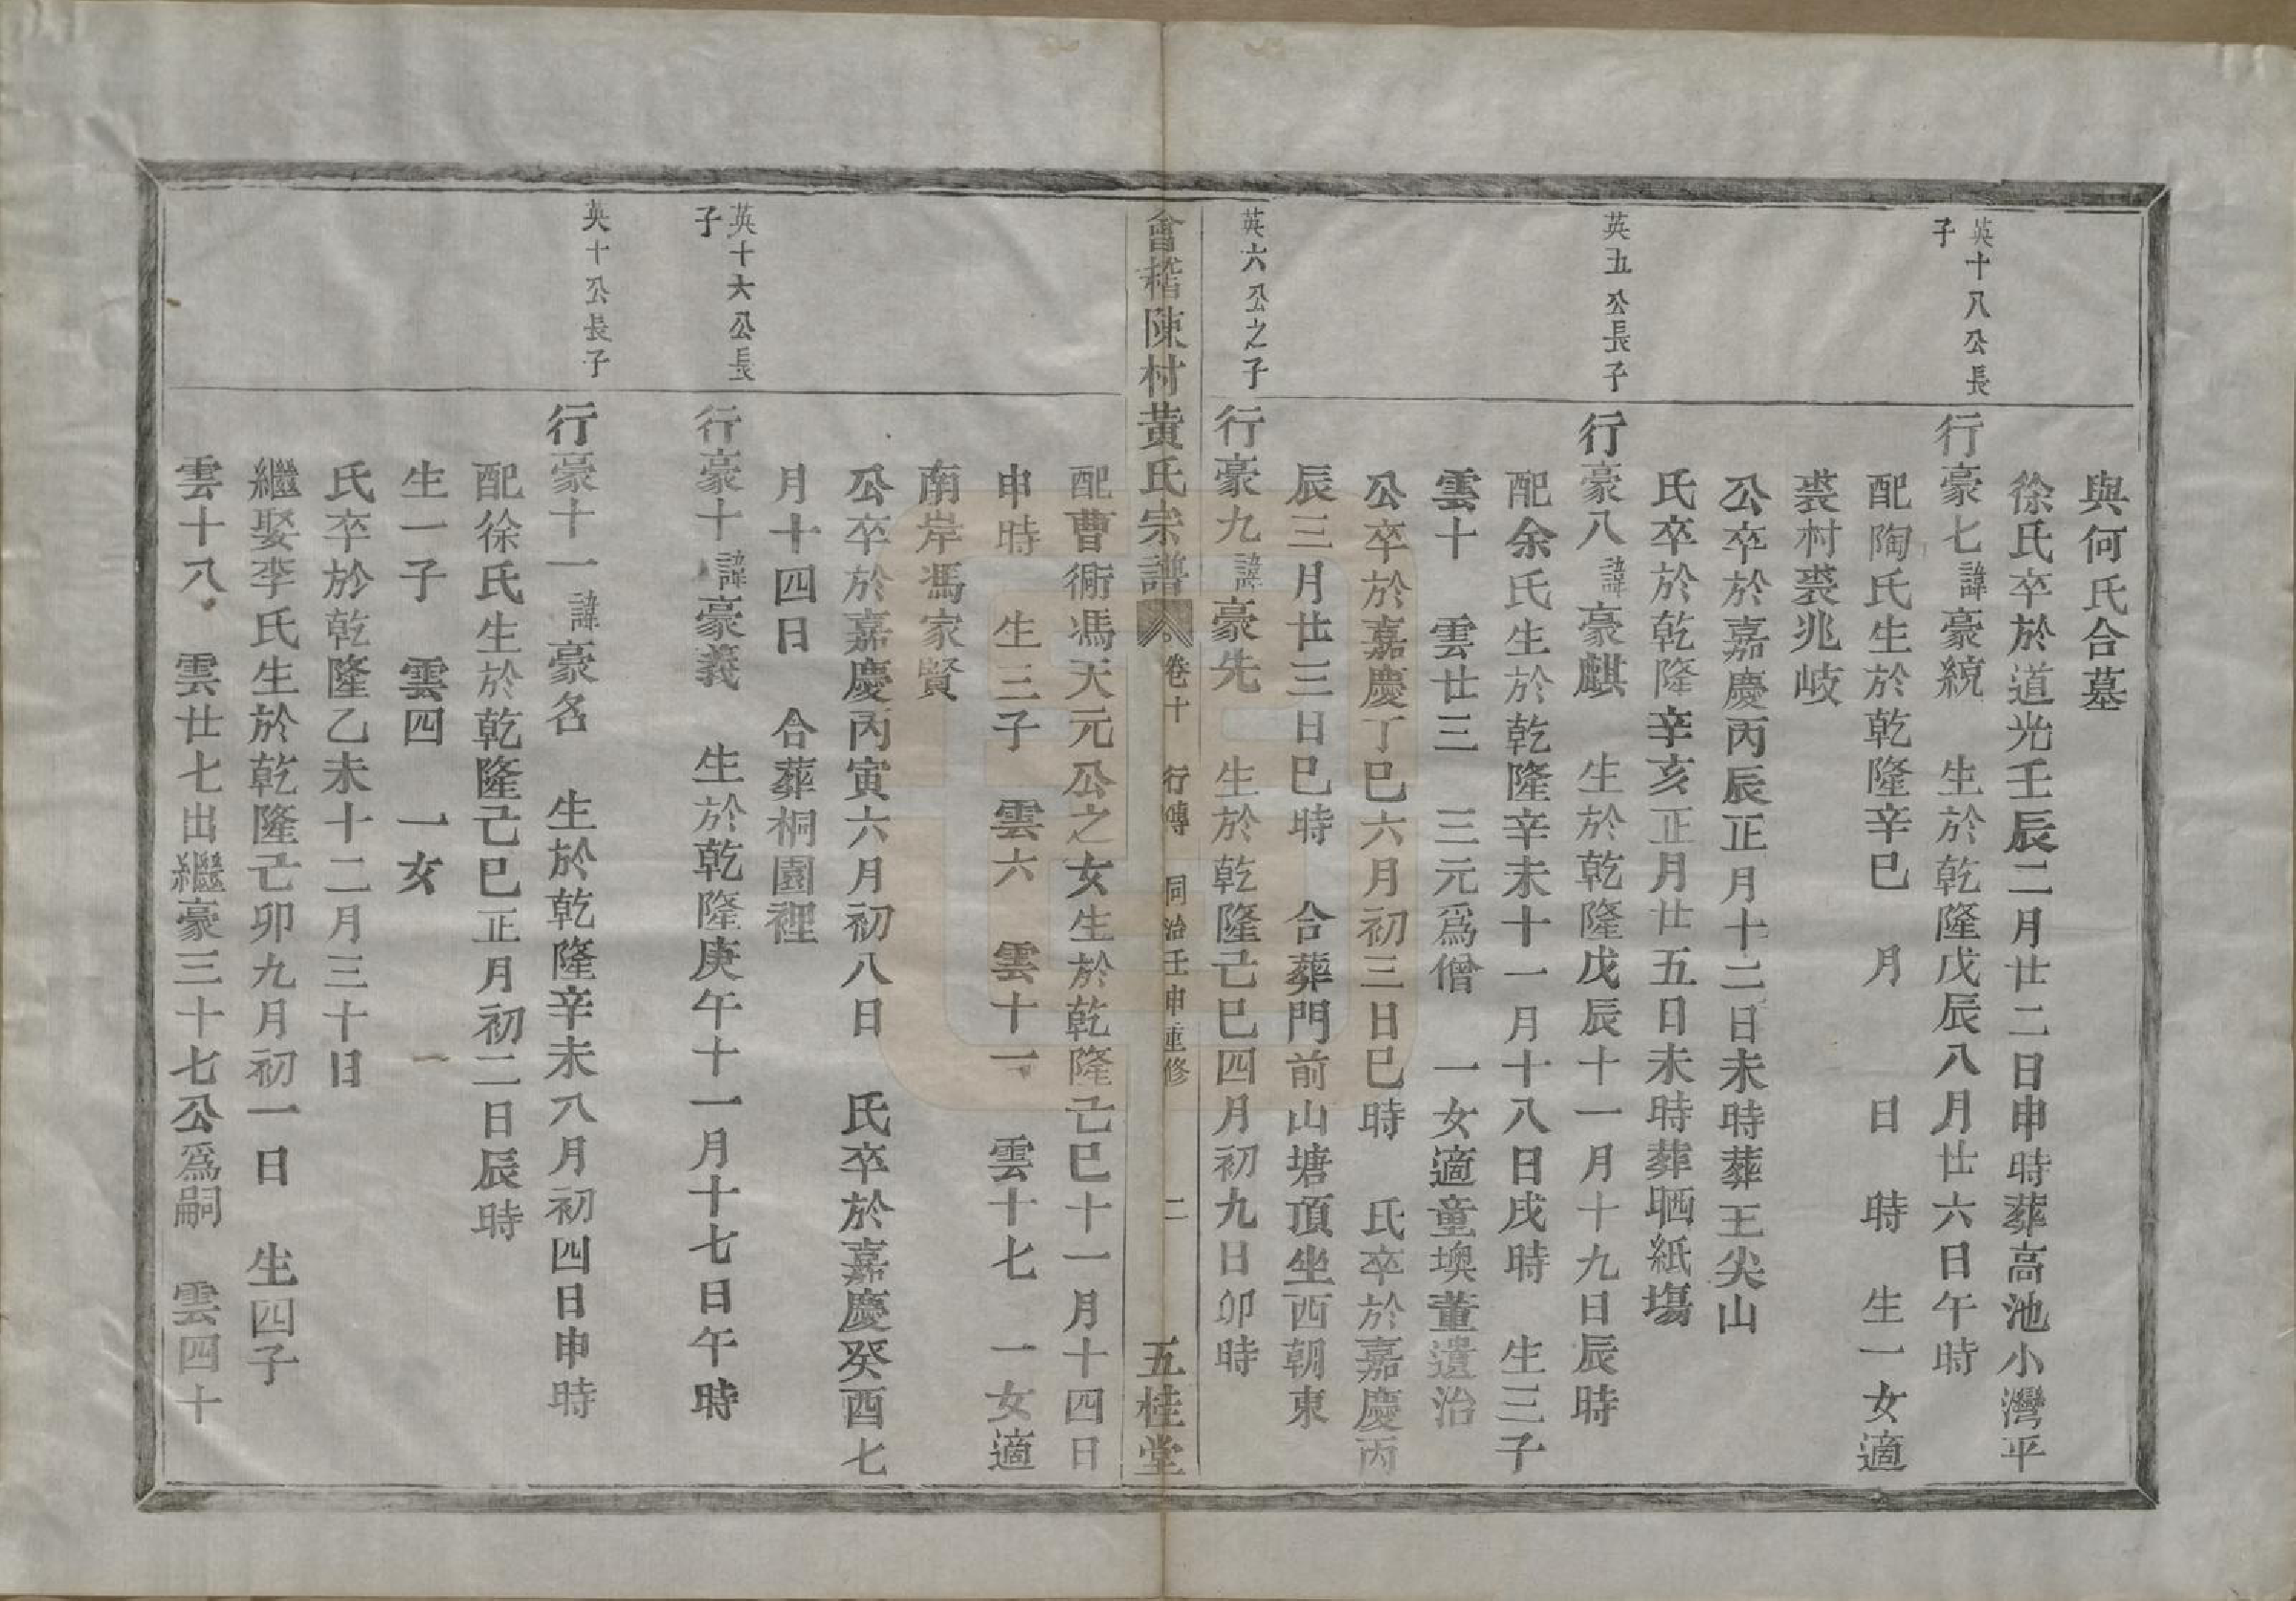 與何氏合墓
徐氏卒於道光壬辰二月廿二日申時葬高池小灣平
英十八公長子
行豪七諱豪統　生於乾隆戊辰八月廿六日午時
配陶氏生於乾隆辛巳　月　　日　時　生一女適
裘村裘兆岐
公卒於嘉慶丙辰正月十二日未時葬王尖山
氏卒於乾隆辛亥正月廿五日未時葬晒紙塲
英五公長子
行豪八諱豪麒　生於乾隆戊辰十一月十九日辰時
配余氏生於乾隆辛未十一月十八日戌時　生三子
雲十　雲廿三　三元爲僧　一女適童墺董遺治
公卒於嘉慶丁巳六月初三日巳時　氏卒於嘉慶丙
辰三月廿三日巳時　合葬門前山塘頂坐西朝東
英六公之子
行豪九諱豪先　生於乾隆己巳四月初九日卯時
會稽陳村黃氏宗譜　卷十　行傳　同治壬申重修　二　五桂堂
配曹衕馮天元公之女生於乾隆己巳十一月十四日
申時　生三子　雲六　雲十一　雲十七　一女適
南岸馮家賢
公卒於嘉慶丙寅六月初八日　氏卒於嘉慶癸酉七
月十四日　合葬桐園裡
英十六公長子
行豪十諱豪義　生於乾隆庚午十一月十七日午時
英十公長子
行豪十一諱豪名　生於乾隆辛未八月初四日申時
配徐氏生於乾隆己巳正月初二日辰時
生一子　雲四　一女
氏卒於乾隆乙未十二月三十日
繼娶李氏生於乾隆己卯九月初一日　生四子
雲十八　雲廿七出繼豪三十七公爲嗣　雲四十